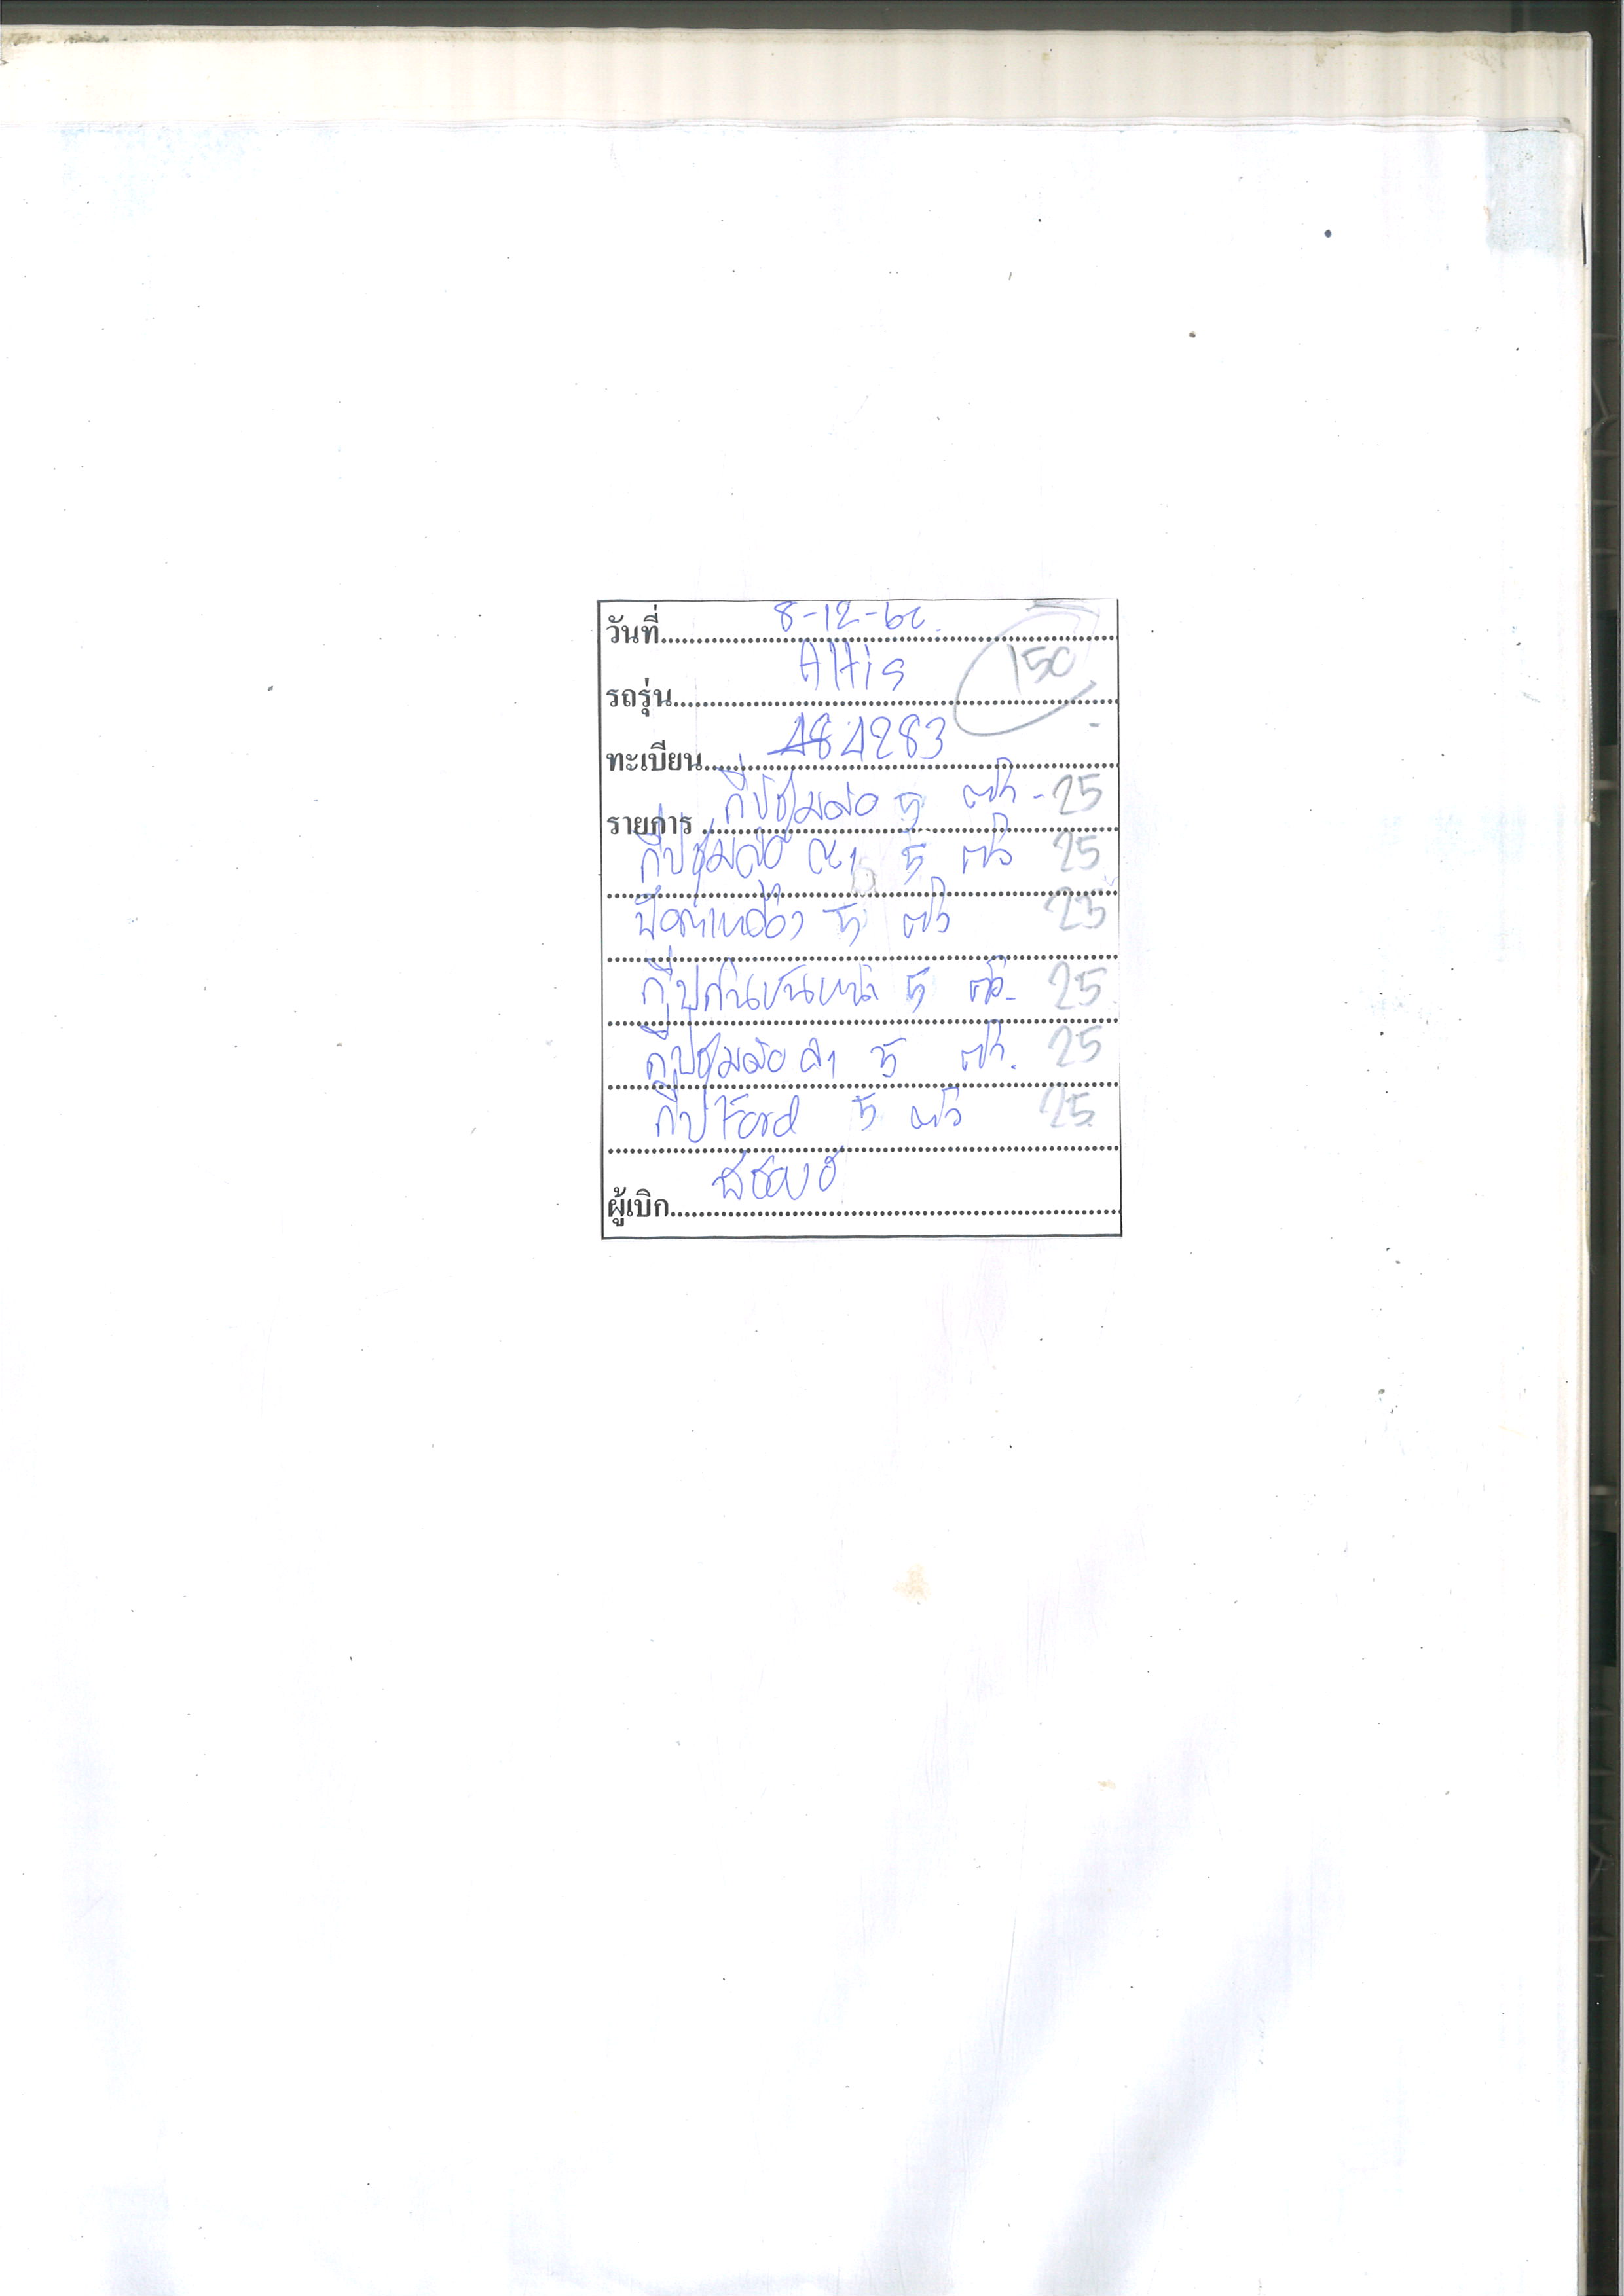 วันที่ 8-12-6
150
รถรุ่น Altis
ทะเบียน 4283
รายการ กิ๊ปซุ้มล้อ 5 ตัว - 25
กิ๊ปซุ้มล้อ 5 ตัว 25
5 ตัว 25
กิ๊ปกันชนหน้า 5 ตัว - 25
กิ๊ปซุ้มล้อ ดำ 5 ตัว. 25
กิ๊ป Ford 5 ตัว 25
ผู้เบิก